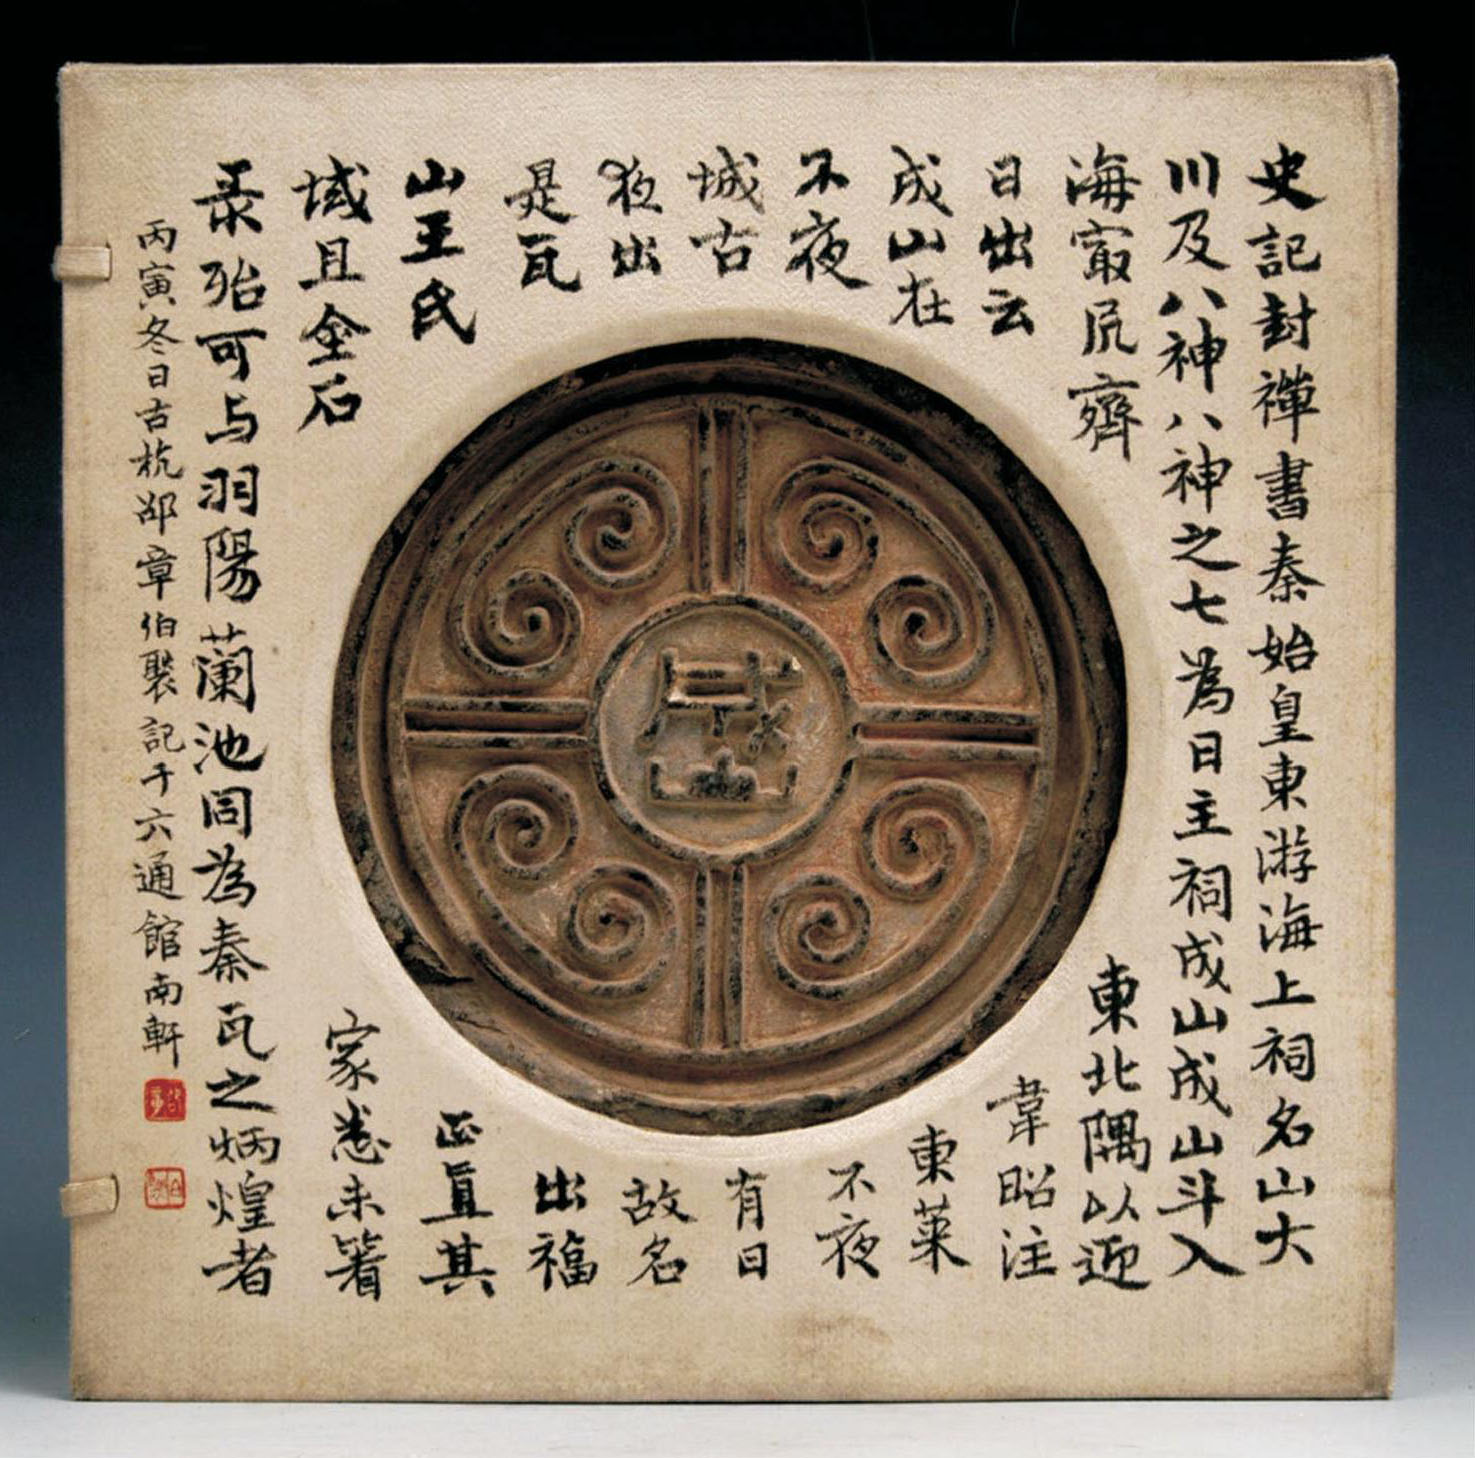 史記封禪書秦始皇東游海上祠名山大
川及八神八神之七為日主祠成山成山斗入
海㝡凥齊東北隅以迎
日出云韋昭注
成山在東萊
不夜不夜
城古有日
夜出故名
是瓦出福
山王氏正直其
域且金石家悉未箸
录殆可与羽陽蘭池同為秦瓦之炳煌者
丙寅冬日古杭邵章伯褧記于六通館南軒
成山